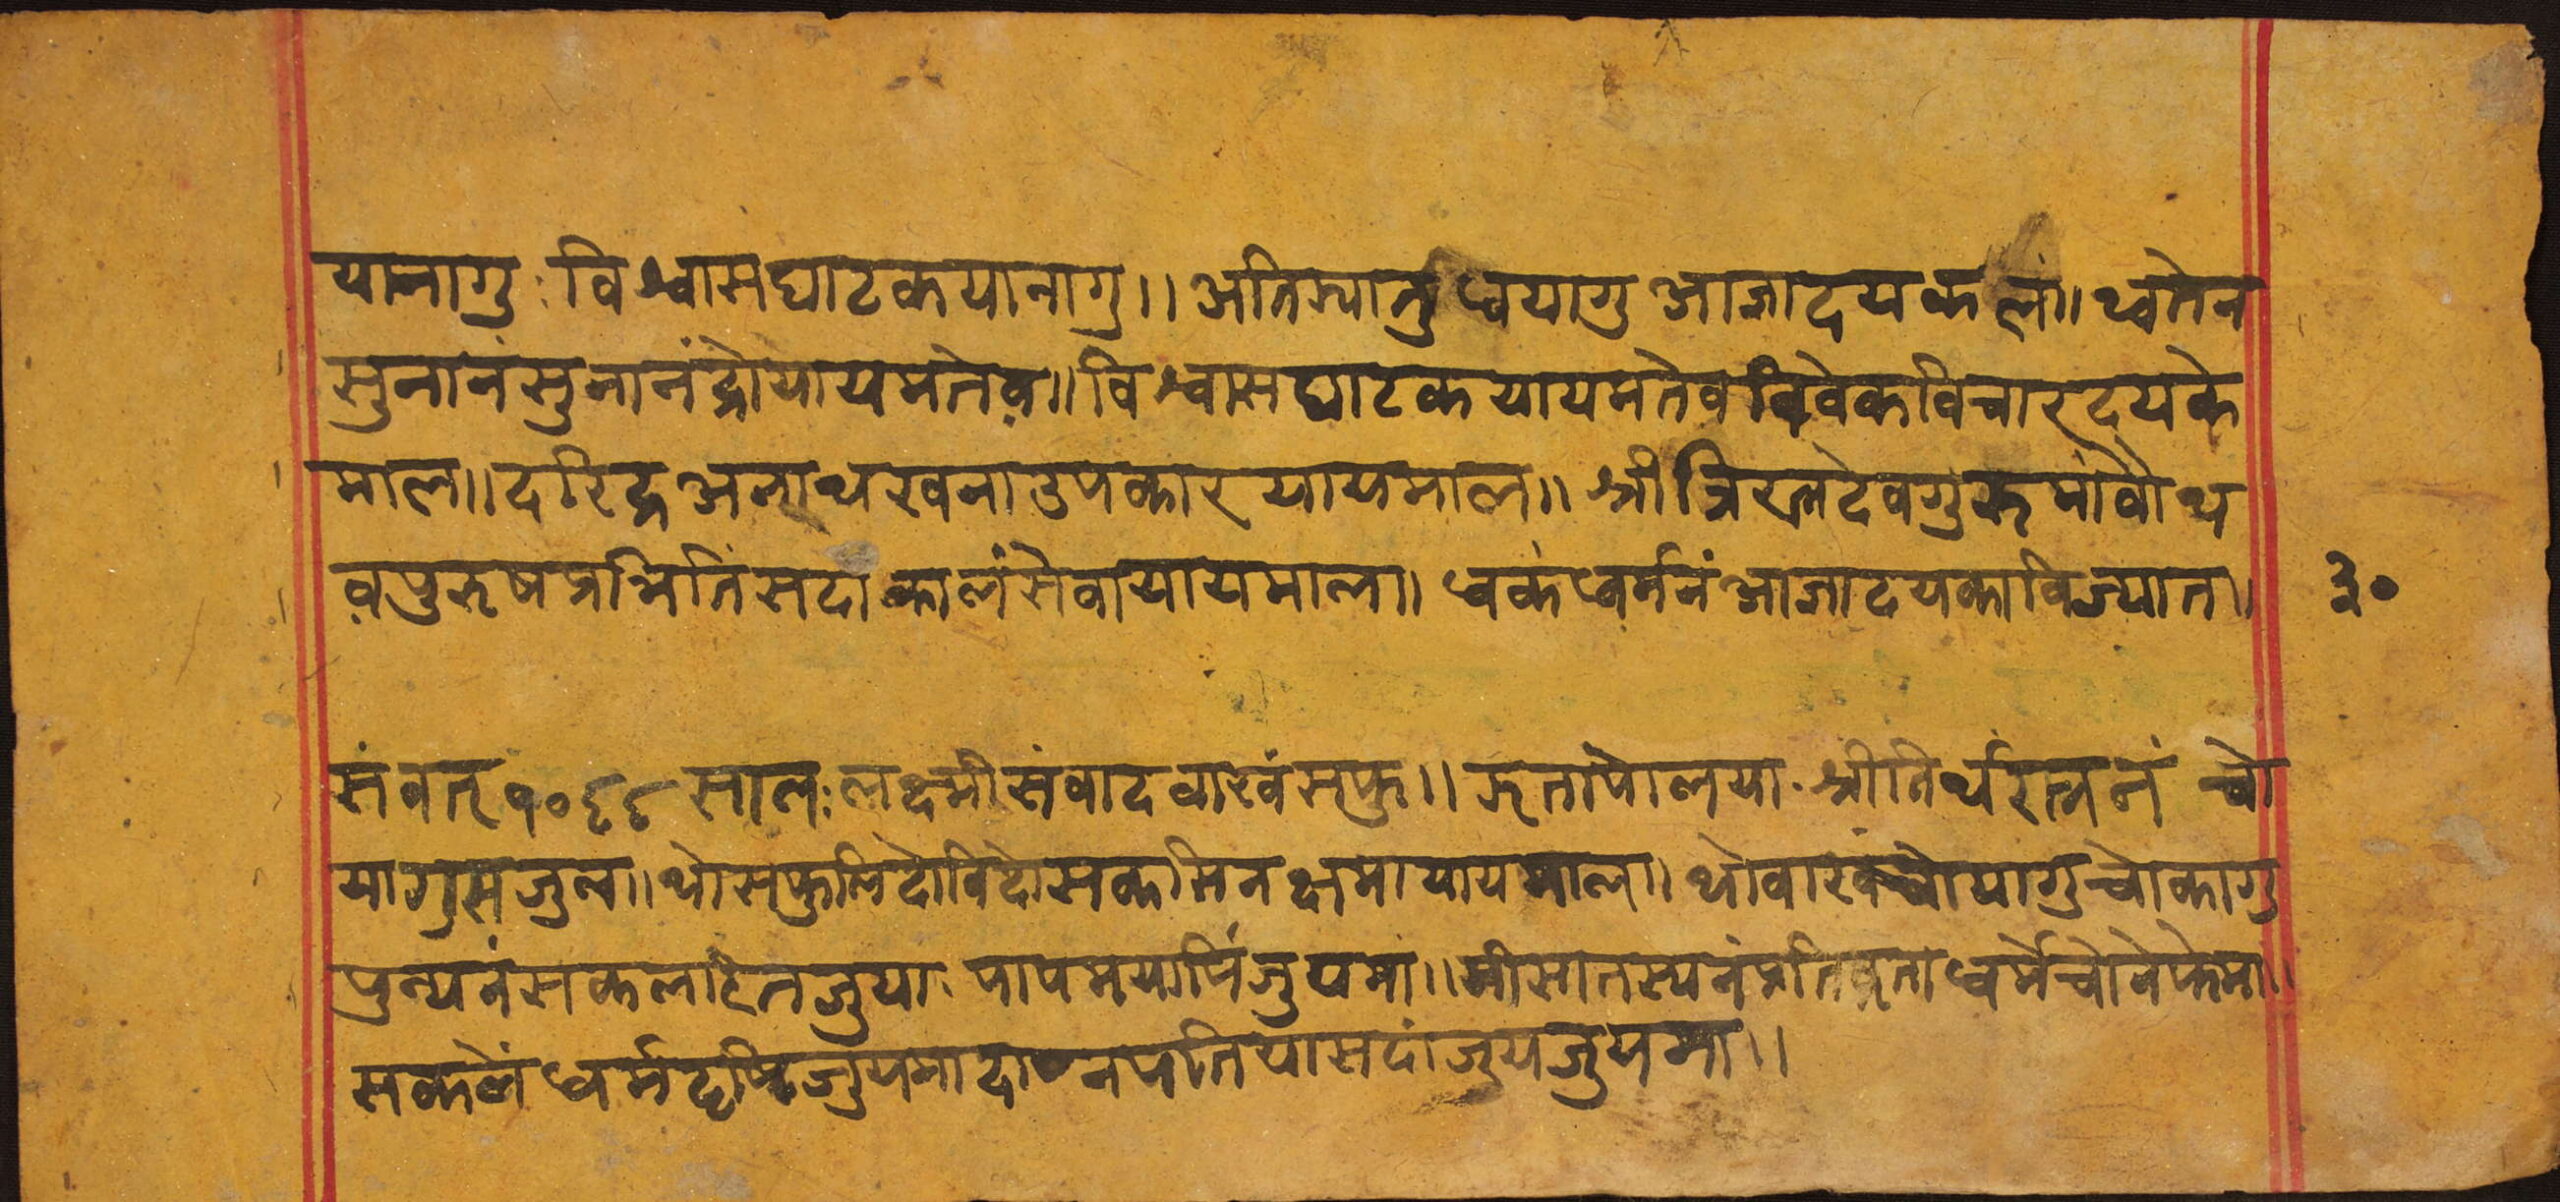 यानागु : विश्वासघाटकयानागु ।। अतिम्यातु ध्वयागु आज्ञादयकलं ।। थ्वतेन
सुनानं सुनानं द्रोयायमतेव ।। विश्वासघाटकयायमतेव विवेकविचारदयके
माल ।। दरिद्र अनाथखना उपकारयायमाल ।। श्रीत्रिरत्नदेवगुरुमांवौथ
वपुरुषप्रभितिं सदां कालं सेवायायमाल ।। ध्वकं धर्मनं आज्ञादयकाविज्यात ।।
३०
संवत् १०६६ साल : लक्ष्मीसंवाद वाखं सफु ।। ऋतापोलया श्रीतिर्थरत्ननं चो
यागुसजुल ।। थोसफुलिदोविदोसकसिन क्षमायायमाल ।। थोवाखं चोयागु चोकागु
पुन्यनं सकलहितजुया पापमयापिं जुयमां ।। मीसातस्यनं प्रतिव्रताधर्मे चोनेफेमा ।।
सकलें धर्मदृष्टि जुयमा दानपतिया सदां जुयजुयमा ।।